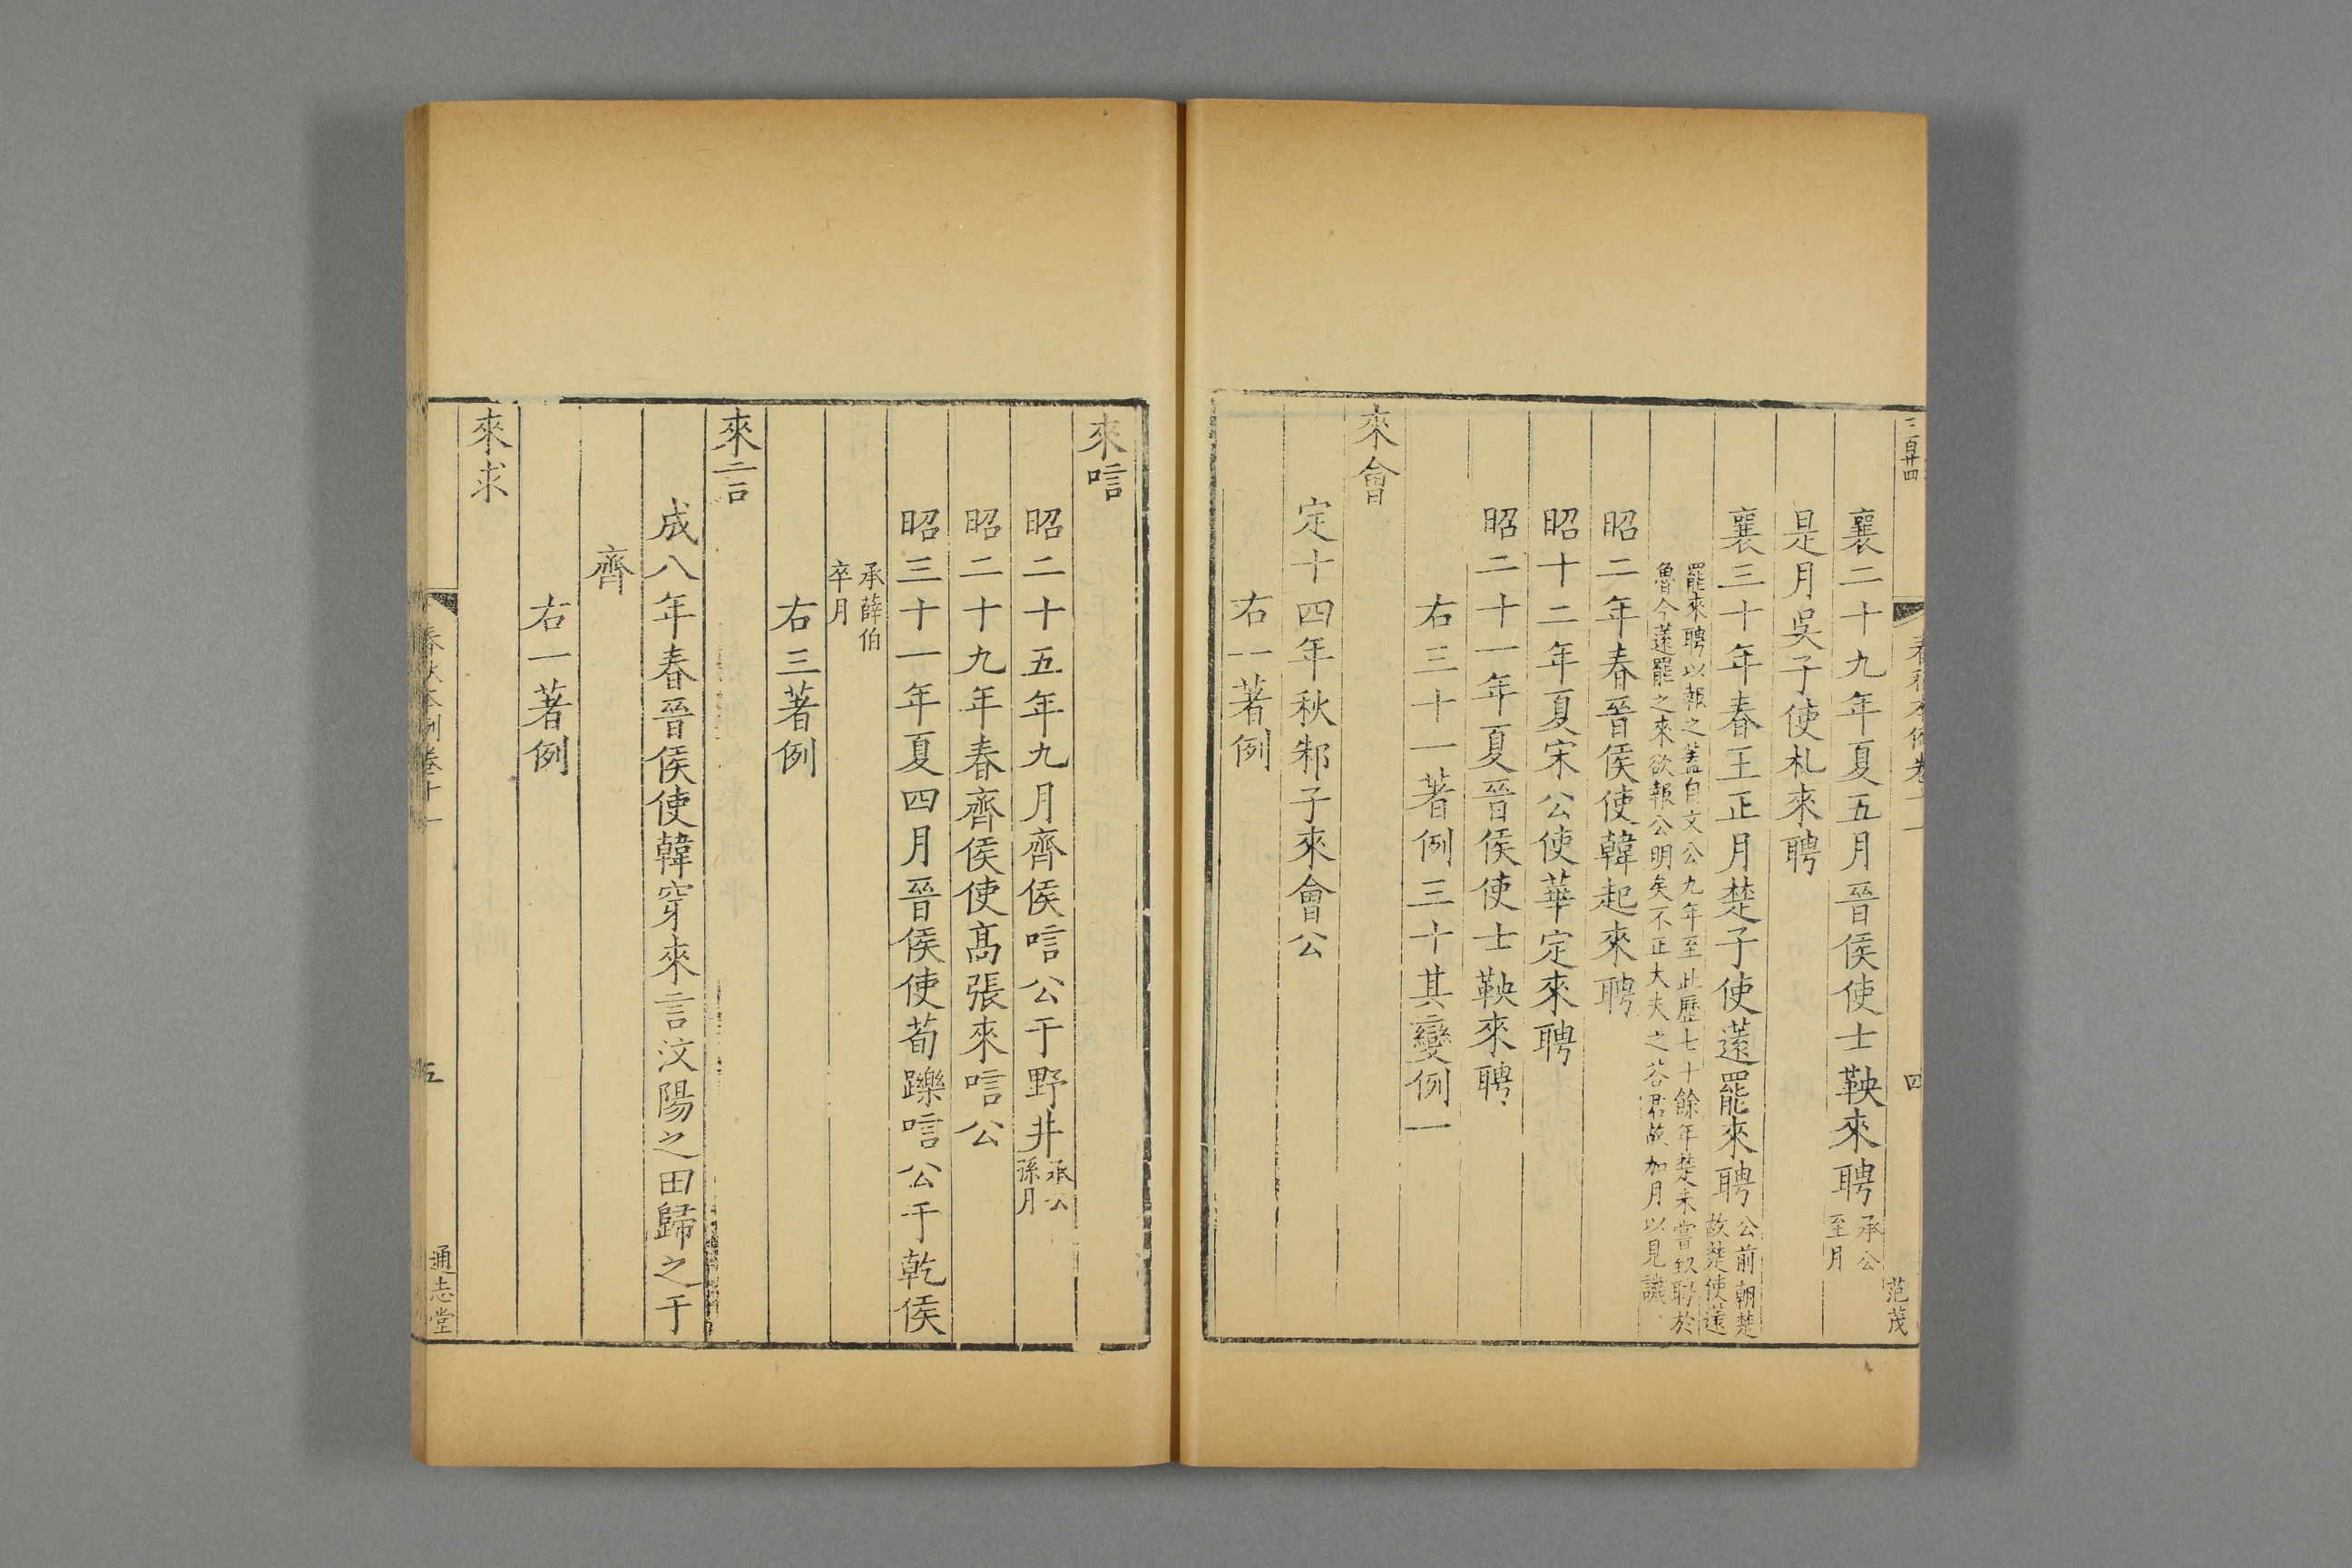 三百廿四
春秋本例卷十一
四
范茂
襄二十九年夏五月晉侯使士鞅來聘承公至月
是月吳子使札來聘
襄三十年春王正月楚子使薳罷來聘公前朝楚故楚使薳
罷來聘以報之蓋自文公九年至此歷七十餘年楚未嘗致聘於
魯今薳罷之來欲報公明矣不正大夫之荅君故加月以見譏
昭二年春晉侯使韓起來聘
昭十二年夏宋公使華定來聘
昭二十一年夏晉侯使士鞅來聘
右三十一著例三十其變例一
來會
定十四年秋邾子來會公
右一著例
來唁
昭二十五年九月齊侯唁公于野井承公孫月
昭二十九年春齊侯使髙張來唁公
昭三十一年夏四月晉侯使荀躒唁公于乾侯
承薛伯卒月
右三著例
來言
成八年春晉侯使韓穿來言汶陽之田歸之于
齊
右一著例
來求
春秋本例卷十一
五
通志堂